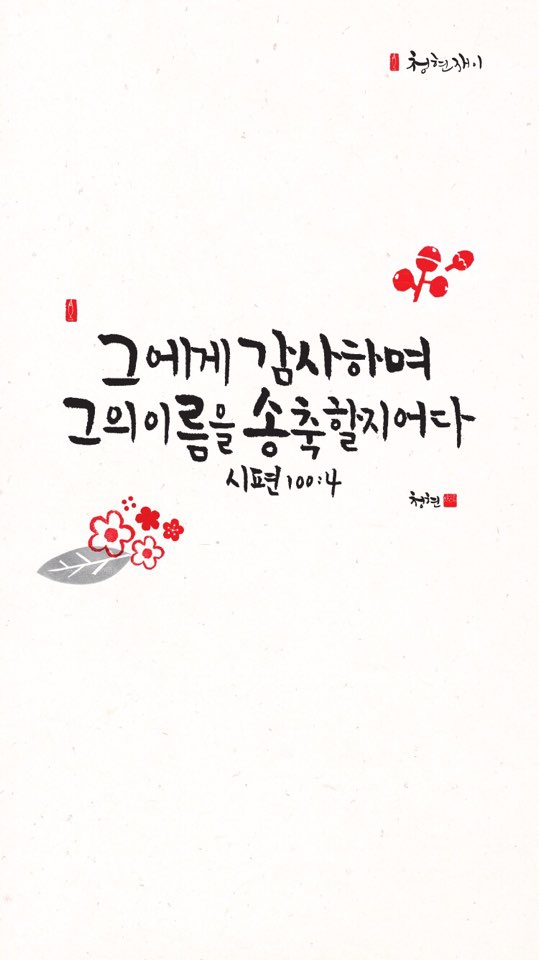 청현재이
그에게 감사하며
그의 이름을 송축할지어다
시편 100:4
청현